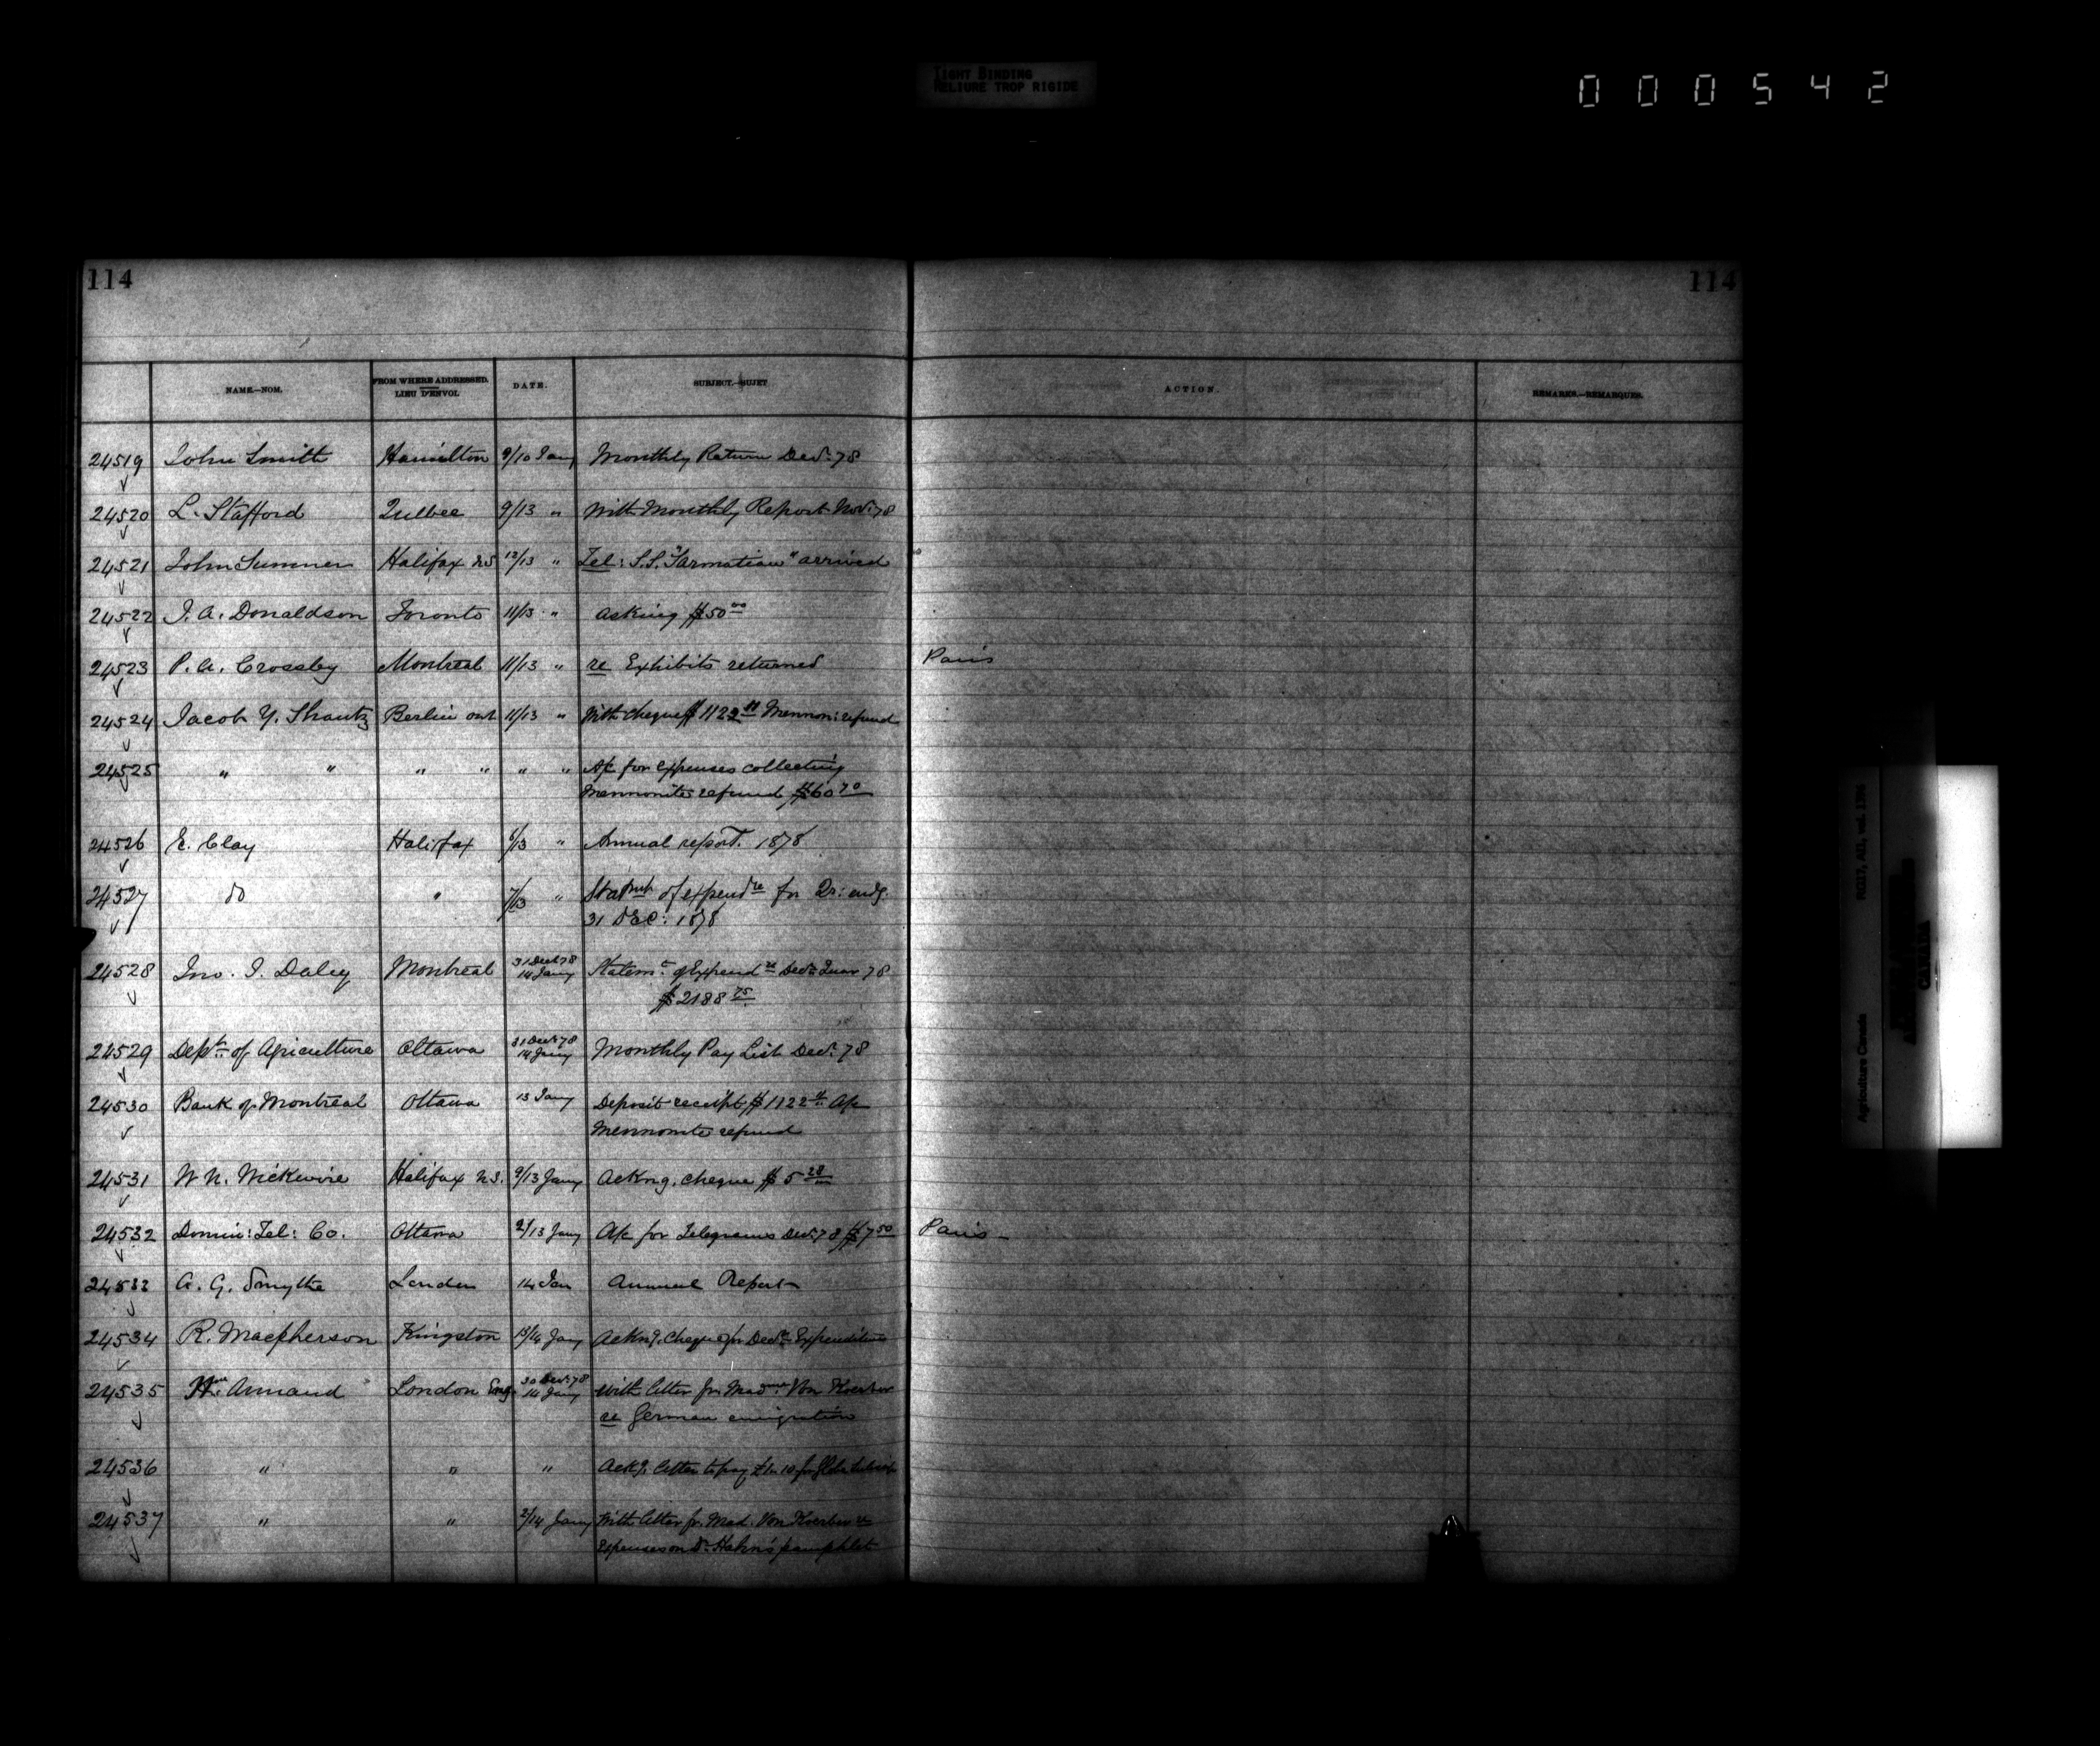 TIGHT BINDING
RELIURE TROP RIGIDE
000542
114 114
NAME.—NOM. FROM WHERE ADDRESSED. LIEU D'ENVOI. DATE. SUBJECT.—SUJET ACTION. REMARKS.—REMARQUES.
24519 John Smith Hamilton 9/10 Jany Monthly Return Decr. 78
24520 L. Stafford Quebec 9/13 " With Monthly Report Novr. 78
24521 John Sumner Halifax NS 12/13 " Tel: S.S. "Sarmatian" arrived
24522 J. A. Donaldson Toronto 11/13 " asking $50 00
24523 P. A. Crossby Montreal 11/13 " re Exhibits returned Paris
24524 Jacob Y. Shantz Berlin ont 11/13 " With cheque $1122 11 Mennon: refund
24525 " " " " " " A/c for expenses collecting
Mennonite refund $60 70
24526 E. Clay Halifax 6/13 " Annual report. 1878
24527 do " 7/13 " of expendre for Qr: endg.
31 DEC: 1878
24528 Jno. J. Daley Montreal 31 Decr 78 14 Jany Statemt. of Expendre Decr. Quar 78
$2188 75
24529 Dept. of Agriculture Ottawa 31 Decr. 78 14 Jany Monthly Pay List Decr. 78
24530 Bank of Montreal Ottawa 13 Jany Deposit receipt $1122 11 A/c
Mennonite refund
24531 W N. Wickwire Halifax N.S. 9/13 Jany Ackng. cheque $5 28
24532 Domin: Tel: Co. Ottawa 2/13 Jany A/c for Telegrams Decr. 78 $7 50 Paris
24533 A. G. Smythe London 14 Jan Annual Report
24534 R. Macpherson Kingston 13/14 Jany Ackng. cheque for Decr. Expenditure
24535 Annand London Eng. 30 Decr. 78 14 Jany With letter fr. Madme. Von Koerber
re German emigration
24536 " " " Ackg. letter to pay
24537 " " 2/14 Jany With letter fr. Mad. Von Koerber re
Expenses on Dr. Hahn's pamphlet
RG17, AII, vol. 1396
Agriculture Canada
CANADA